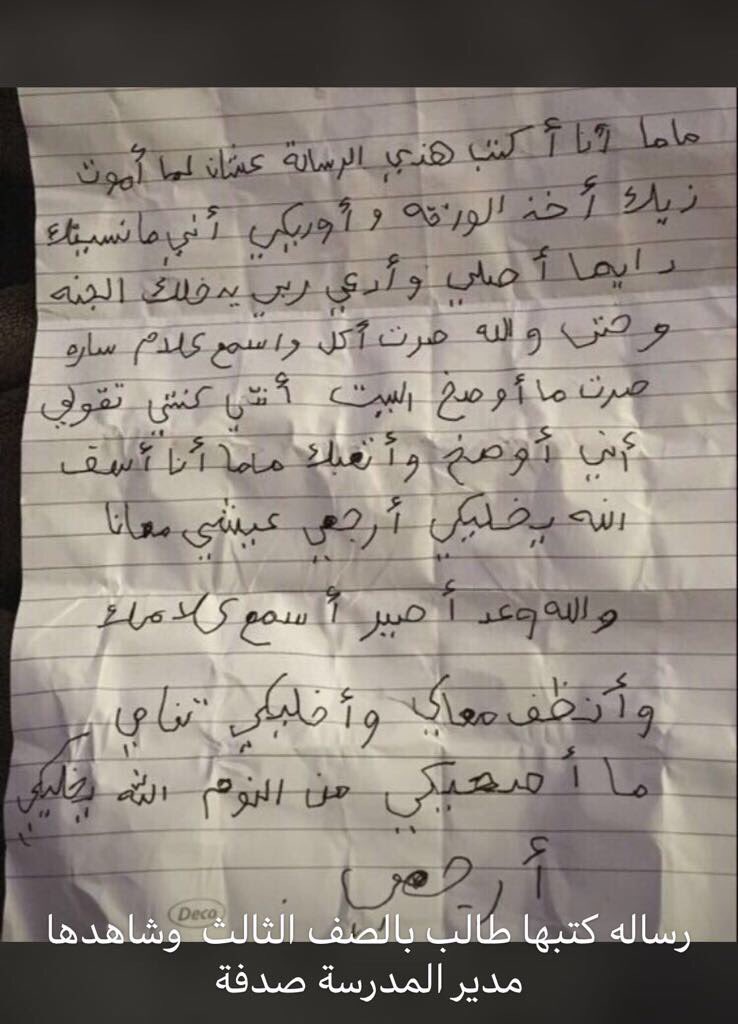 ماما أنا أكتب هذي الرسالة عشان لما أموت
زيك أخذ الورقه و أوريكي أني ما نسيتك
دايما أصلي و أدعي ربي يدخلك الجنه
و حتى و الله صرت أكل و اسمع كلام ساره
صرت ما أوصخ البيت أنتي كنتي تقولي
أني أوصخ و أتعبك ماما أنا أسف
الله يخليكي أرجعي عيشي معانا
و الله وعد أصير أسمع كلامك
و أنظف معاكي و أخليكي تنامي
ما أصحيكي من النوم الله يخليكي
أرجعي
Deco
رساله كتبها طالب بالصف الثالث وشاهدها
مدير المدرسة صدفة